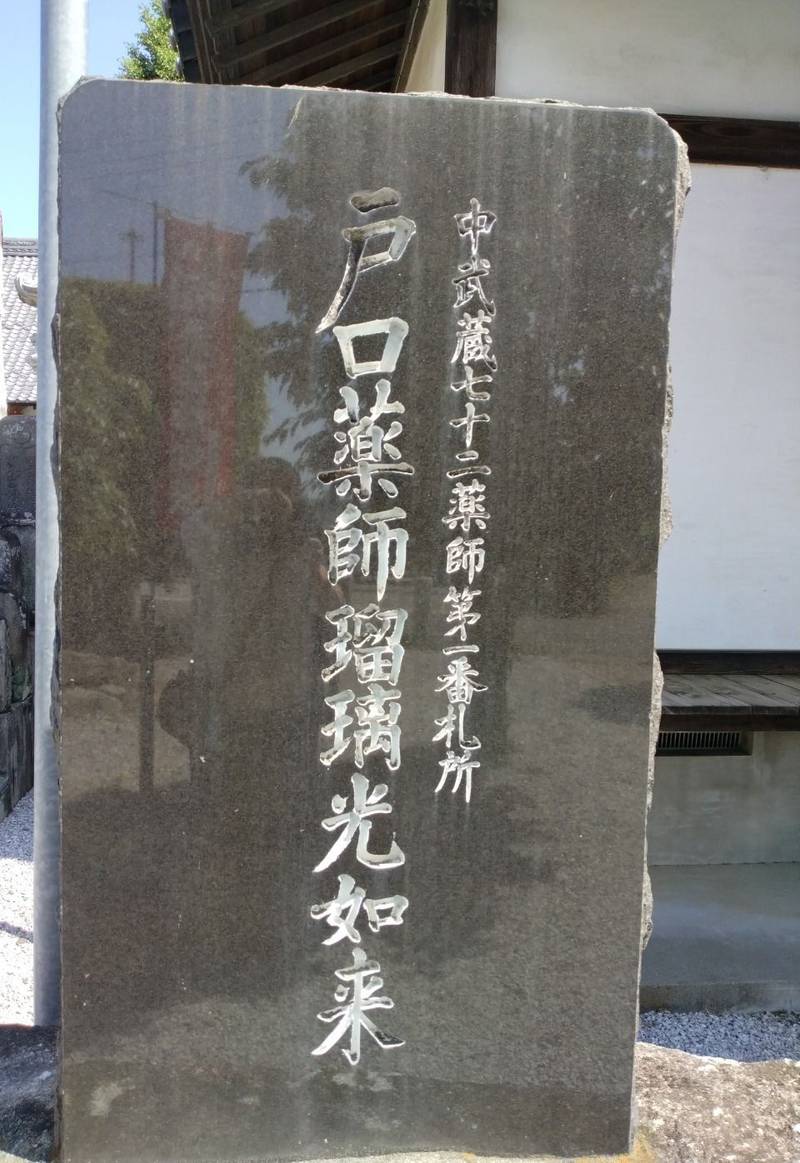 中武蔵七十二薬師第一番札所
戸口薬師瑠璃光如来